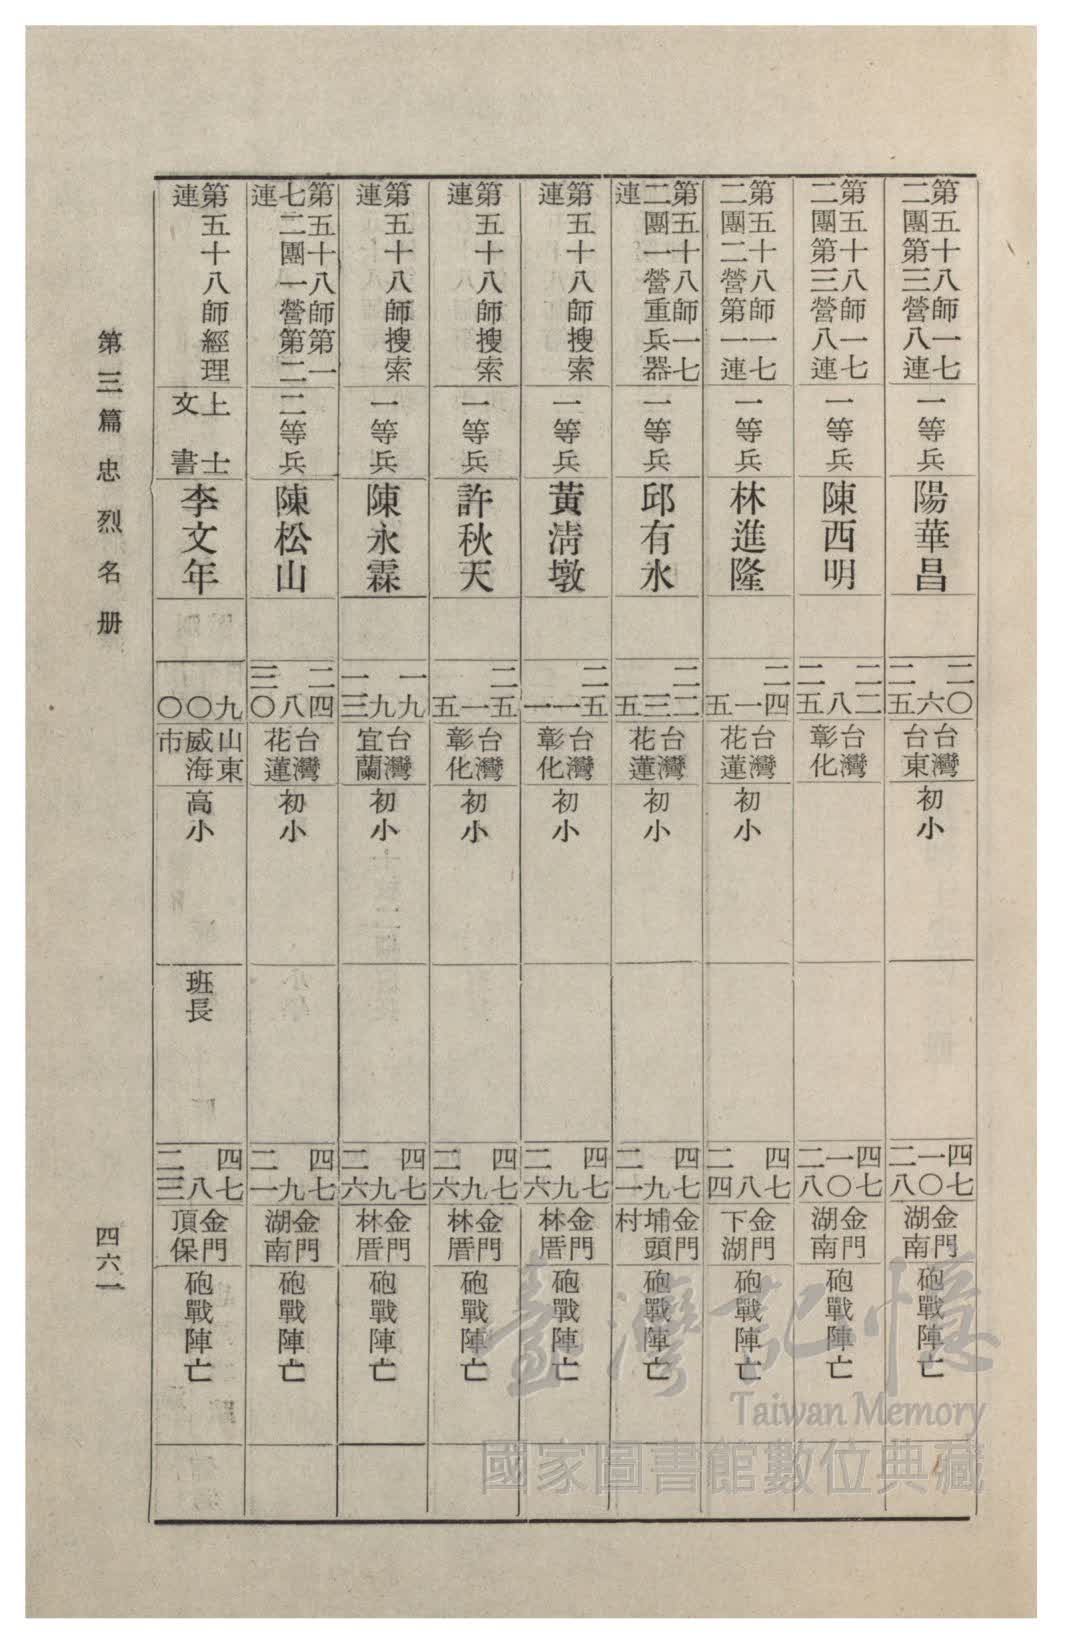 第五十八師一七
二團第三營八連
一等兵
陽華昌
二〇
六
二五
台灣
台東
初小
四七
一〇
二八
金門
湖南
砲戰陣亡
第五十八師一七
二團第三營八連
一等兵
陳西明
二二
八
二五
台灣
彰化
四七
一〇
二八
金門
湖南
砲戰陣亡
第五十八師一七
二團二營第一連
一等兵
林進隆
二四
一
五
台灣
花蓮
初小
四七
八
二四
金門
下湖
砲戰陣亡
第五十八師一七
二團一營重兵器
連
一等兵
邱有水
二二
三
五
台灣
花蓮
初小
四七
九
二一
金門
埔頭
村
砲戰陣亡
第五十八師搜索
連
一等兵
黃淸墩
二五
一
一
台灣
彰化
初小
四七
九
二六
金門
林厝
砲戰陣亡
第五十八師搜索
連
一等兵
許秋天
二五
一
五
台灣
彰化
初小
四七
九
二六
金門
林厝
砲戰陣亡
第五十八師搜索
連
一等兵
陳永霖
一九
九
一三
台灣
宜蘭
初小
四七
九
二六
金門
林厝
砲戰陣亡
第五十八師第一
七二團一營第二
連
二等兵
陳松山
二四
八
三〇
台灣
花蓮
初小
四七
九
二一
金門
湖南
砲戰陣亡
第五十八師經理
連
上士
文書
李文年
九
〇
〇
山東
威海
市
高小
班長
四七
八
二三
金門
頂保
砲戰陣亡
第三篇 忠烈名册
四六一
臺灣記憶
Taiwan Memory
國家圖書館數位典藏